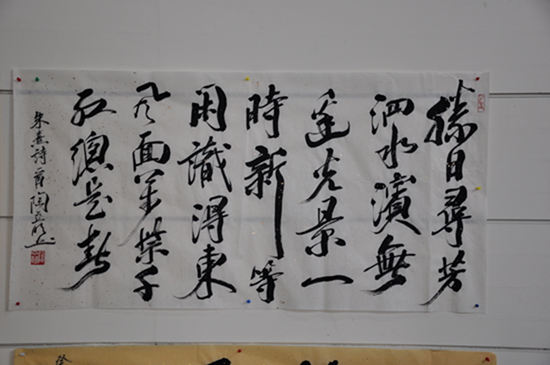 勝日尋芳
泗水濱無
邊光景一
時新等
閑識得東
風面萬紫千
红總是春
朱熹詩